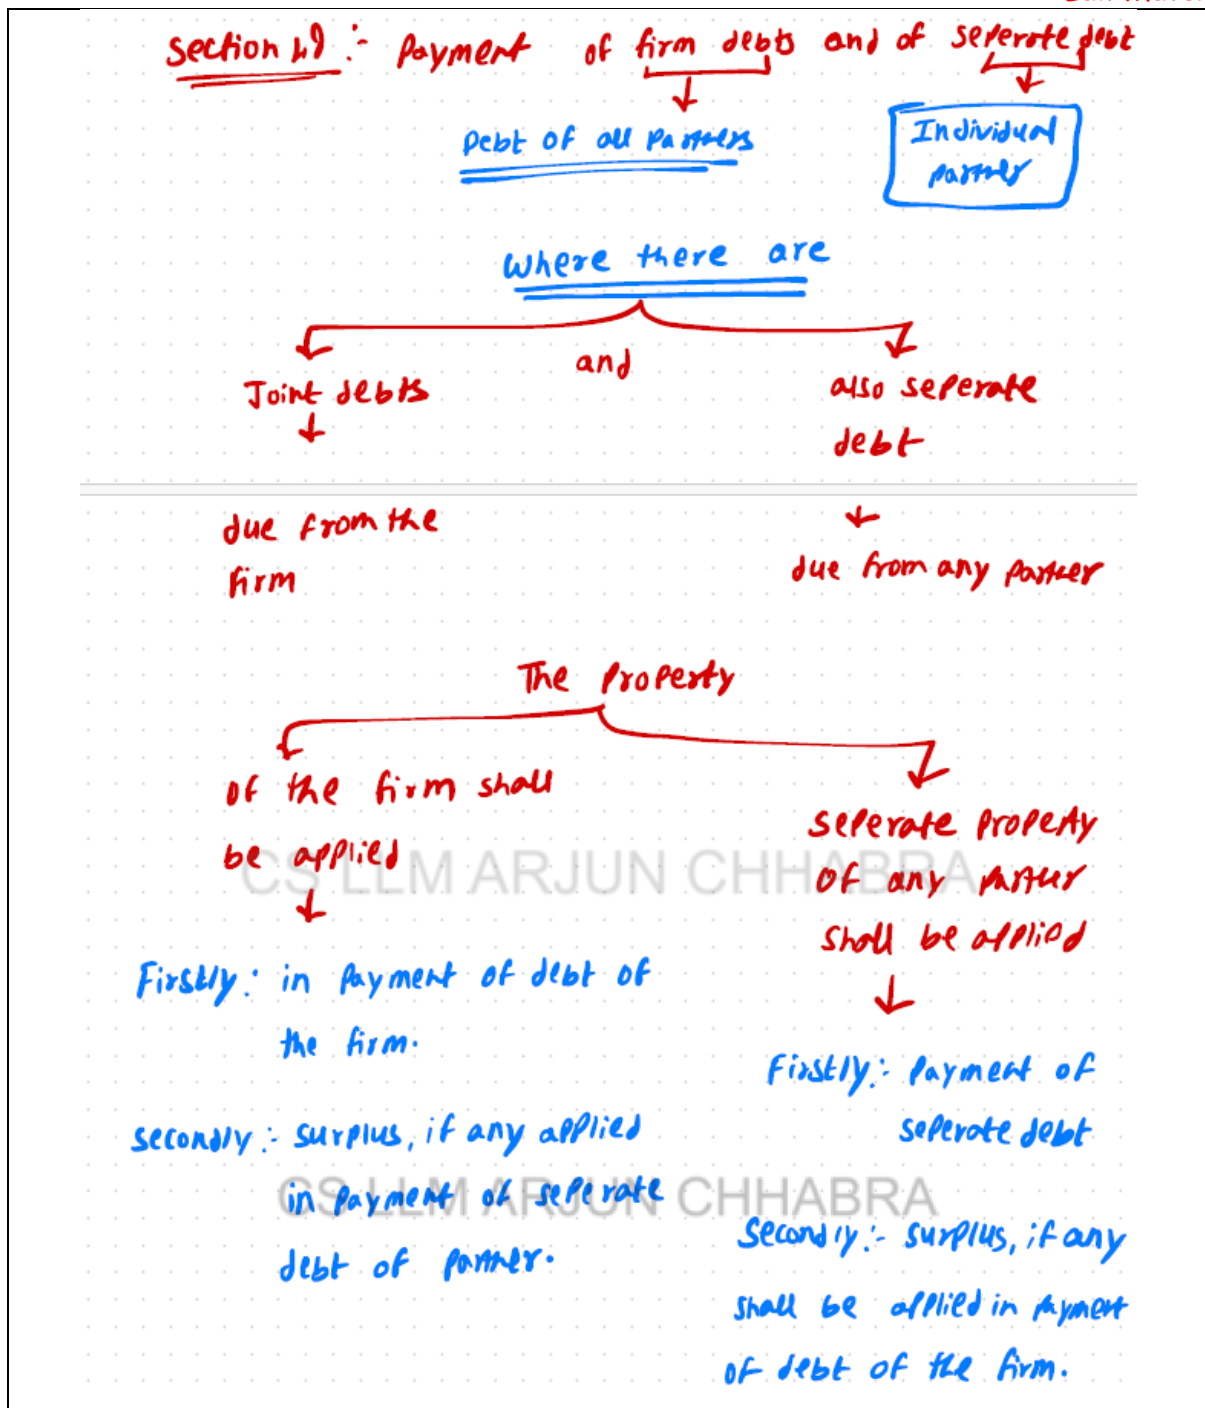 Section 49 :- Payment of firm debts and of seperate debt
Debt of all Partners
Individual
partner
Where there are
and
Joint debts
also seperate
debt
due from the
firm
due from any partner
The Property
of the firm shall
be applied
seperate property
of any partner
shall be applied
CS LLM ARJUN CHHABRA
Firstly: in Payment of debt of
the firm.
Firstly:- Payment of
seperate debt
secondly:- surplus, if any applied
in payment of seperate
debt of partner.
CS LLM ARJUN CHHABRA
Secondly:- surplus, if any
shall be applied in payment
of debt of the firm.